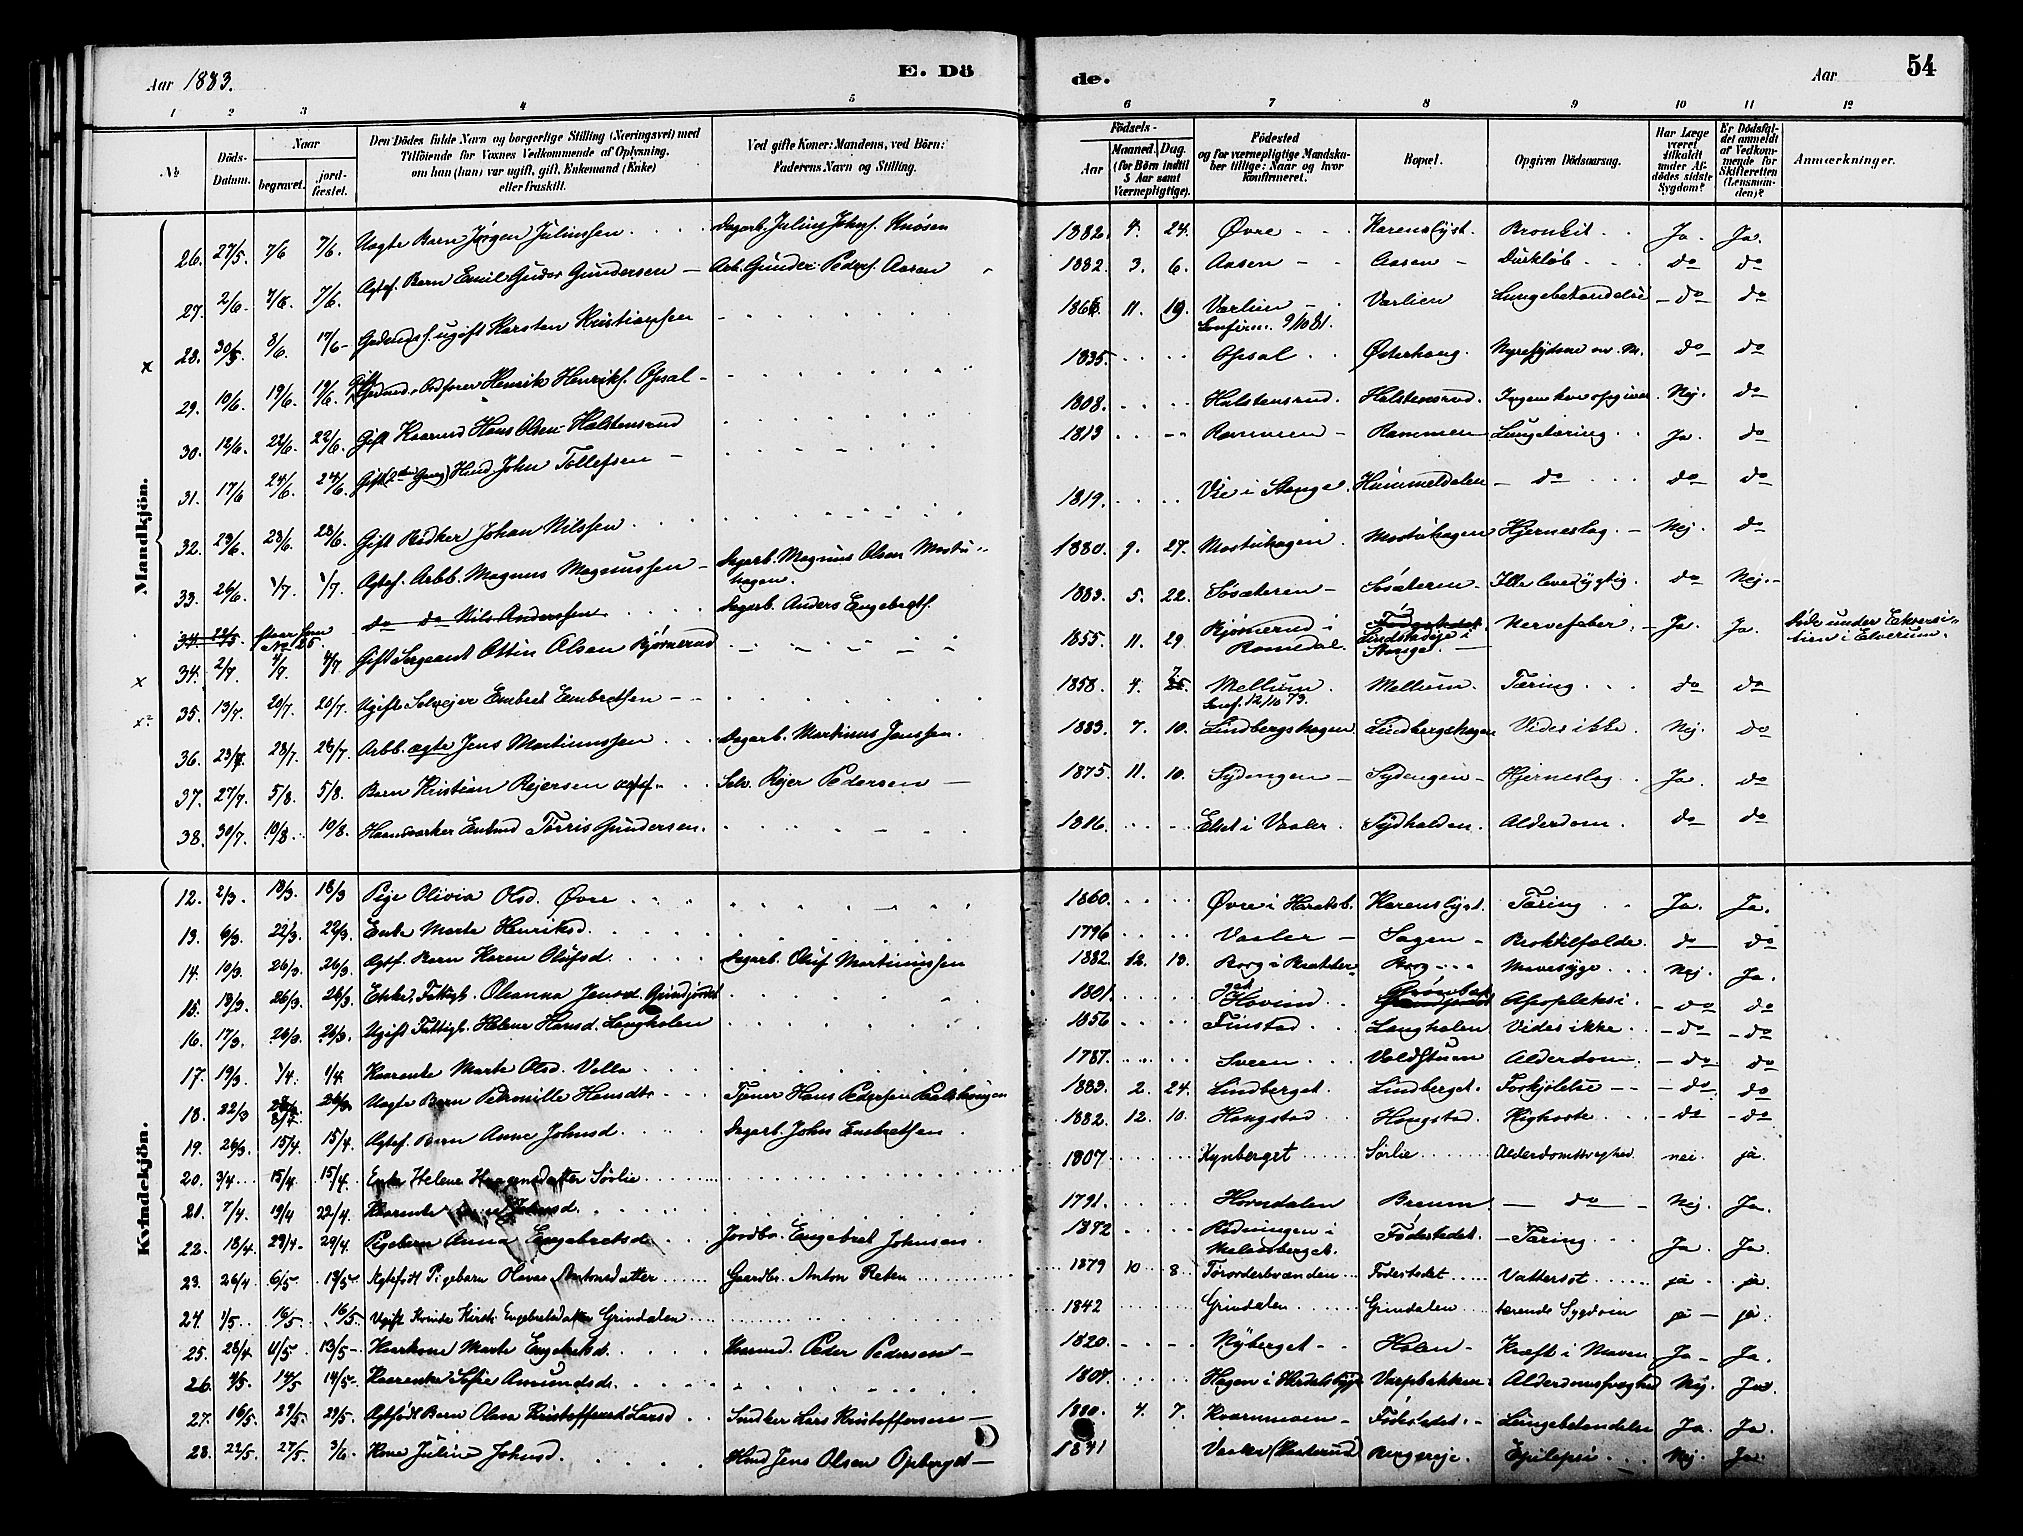 Aar 1883. E. Dö
de. Aar 54
1 2 3 4 5 6 7 8 9 10 11 12
№ Döds-Datum. Naar begravet. jordfæstet. Den Dödes fulde Navn og borgerlige Stilling (Næringsvei) med Tilföiende for Voxnes Vedkommende af Oplysning, om hun (han) var ugift, gift, Enkemand (Enke) eller fraskilt. Ved gifte Koner: Mandens, ved Börn: Faderens Navn og Stilling. Födsels- Aar Maaned. Dag. (for Börn indtil 5 Aar samt Værnepligtige). Födested og for værnepligtige Mandskaber tillige: Naar og hvor konfirmeret. Bopæl. Opgiven Dödsaarsag. Har Læge været tilkaldt under Afdödes sidste Sygdom? Er Dödsfaldet anmeldt af Vedkommende for Skifteretten (Lensmanden)? Anmærkninger.
Mandkjön.
26. 27/5 7/6 7/6. Uægte Barn Jørgen Juliussen Dagarb. Julius Johns. Knøsen 1882. 4. 24. Øvre Karenslyst. Bronkit. Ja. Ja.
27. 2/6 7/6. 7/6. Ægtef. Barn Emil Gudor Gundersen Arb. Gunder Peders. Aasen 1882. 3. 6. Aasen Aasen Durkløb do do
28. 30/5 8/6. 17/6 Gaardmds. ugift Karsten Kristiansen 1866. 11. 19. Varlien Konfirm. 9/10 81. Varlien Lungebetændelse do do
29. 10/6. 19/6. 19/6. Gift Henrik Henriks. Opsal 1835 Opsal Østerhaug. do do
30. 12/6. 22/6. 22/6. Gift Kaarmd Hans Olsen Halstensrud 1808. Halstensrud. Halstensrud. Nej. do
31. 17/6 24/6. 24/6. Gift (2den Gang) Husmd. John Tollefsen 1813 Rammen Rammen Lungetæring Ja. do
32. 23/6. 28/6. 28/6. Gift Bødker Johan Nilssen 1819. Vie i Stange. Hummeldalen do do do
33. 26/6 1/7. 1/7. Ægtef. Arbb. Magnus Magnussen Dagarb. Magnus Olsen Mostuhagen. 1880. 9. 27. Mostuhagen. Mostuhagen Hjerneslag. Nej. do
34. 22/5. staar som No 25. do do Nils Anderssen Dagarb. Anders Engebrets. 1883. 5. 22. Søsæteren Søsæteren Ikke levedygtig. do Nej.
34. 2/7 4/7. 4/7. Gift Sergeant Ottin Olsen Bjørnerud 1855. 11. 29. Bjørnerud i Romedal. Fødestedet Lindstadeje i Stange. Nervefeber. Ja. Ja. Døde under Exersitien i Elverum.
35. 13/7. 20/7. 20/7. Ugift Selvejer Embret Embretsen 1858. 4. 7. Mellum. Konf. 12/10 73. Mellum. Tæring do do
36. 23/7. 28/7. 28/7. Arbb. ægte Jens Martinussen Dagarb. Martinus Jenssen. 1883. 7. 10. Lindbergshagen Lindbergshagen Vides ikke. Nej. do
37. 27/7 5/8. 5/8. Barn Kristian Rejersen ægtef. Selv. Rejer Pedersen 1875. 11. 10. Sydengen Sydengen Hjerneslag. Ja. do
38. 30/7. 10/8. 10/8. Haandværker Enkmd Torris Gundersen. 1816. Elset i Vaaler. Sydhalden. Alderdom. do do
Kvindekjön.
12. 2/3. 13/3. 18/3 Pige Olivia Olsd. Øvre 1860. Øvre i Haratsb. Karenslyst. Tæring Ja. Ja.
13. 6/3. 22/3. 22/3. Enke Marte Henriksd. 1796 Vaaler Sagen Broktilfælde. do do
14. 19/3. 26/3. 26/3. Ægtef. Barn Karen Olufsd. Dagarb. Oluf Martinussen 1882. 12. 13. Borg Mavesyge Nej. Ja.
15. 18/3. 26/3. 26/3. Enke, Fattigl. Oleanna Jensd. Grindjordet 1801. Hovind Apopleksi do do
16. 17/3. 26/3. 26/3. Ugift Fattigl. Helene Hansd. Langholen 1856 Finstad Langholen Vides ikke do do
17. 19/3. 1/4. 1/4. Kaarenke Marte Olsd. Volla 1787. Sveen Alderdom do do
18. 22/3 26/3. Uægte Barn Petronille Hansdtr. Tjener Hans Pedersen 1883. 2. 24. Lindberget. Lindberget. Forkjølelse do do
19. 26/3. 15/4. 15/4. Ægtef. Barn Anne Johnsd. Dagarb. John Embretsen 1882. 12. 10. Haugstad Haugstad Kighoste do do
20. 3/4 15/4. 15/4. Enke Helene Haagensdatter Sørlie 1807. Kynberget Sørlie Alderdomssvaghed nei ja.
21. 7/4. 19/4 22/4. Kaarenke Johnsd. 1791. Hovndalen Brenn do Nej. Ja.
22. 18/4. 29/4. 29/4. Pigebarn Anna Engebretsd. Jordbr. Engebret Johnsen. 1872 Fødestedet. Tæring Ja. Ja.
23. 26/4 6/5 13/5 Ægtefødt Pigebarn Olava Antonsdatter Gaardbr. Anton Reten 1879 10 8 Fødestedet Vattersot ja ja.
24. 1/5. 16/5 16/5. Ugift Kvinde Kirsti Engebretsdatter Grindalen 1842 Grindalen Grindalen tærende Sygdom ja ja.
25. 28/4 11/5. 13/5. Kaarkone Marte Engebretsd. Kaarmd. Peder Pedersen 1820. Nyberget Holen Kræft i Maven Ja Ja.
26. 14/5 14/5. Kaarenke Sofie Amundsd. Varpbakken. Alderdomssvaghed Nej. Ja.
27. 16/5. 29/5. 29/5. Ægtefødt Barn Olava Larsd. Lars Kristoffersen 1880. 4. 7. Kvernmoen Fødestedet. Lungebetændelse Ja. Ja.
28. 22/5. 27/5. 3/6. Kone Julia Johnsd. Husmd Jens Olsen Opberget 1841 Epilepsi Nej. Ja.